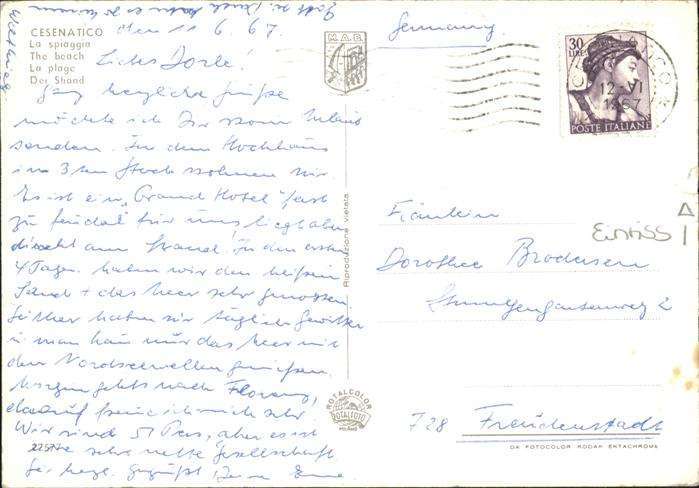 CESENATICO
La spiaggia
The beach
La plage
Der Strand
den 11.6.67.
Liebes Dorle!
Ganz herzliche Grüße
möchte ich Dir vom Urlaub
senden. In dem Hochhaus
im 3ten Stock wohnen wir.
Es ist ein "Grand Hotel" fast
zu feudal für uns, liegt aber
direkt am Strand. In den ersten
4 Tagen haben wir den heißen
Sand + das Meer sehr genossen
Seither haben wir täglich Gewitter
u. man kann nur das Meer mit
den Nordseewellen genießen.
Morgen gehts nach Florenz,
darauf freue ich mich sehr.
Wir sind 51 Pers, aber es ist
eine sehr nette Gesellschaft.
Sei herzl. gegrüßt
22577
M.A.B.
Riproduzione vietata
ROTALCOLOR
ROTALFOTO
MILANO
Germany
30
LIRE
12-VI
1967
POSTE ITALIANE
Fräulein
Eintiss
Dorothee Brodersen
728 Freudenstadt
DA FOTOCOLOR KODAK EKTACHROME